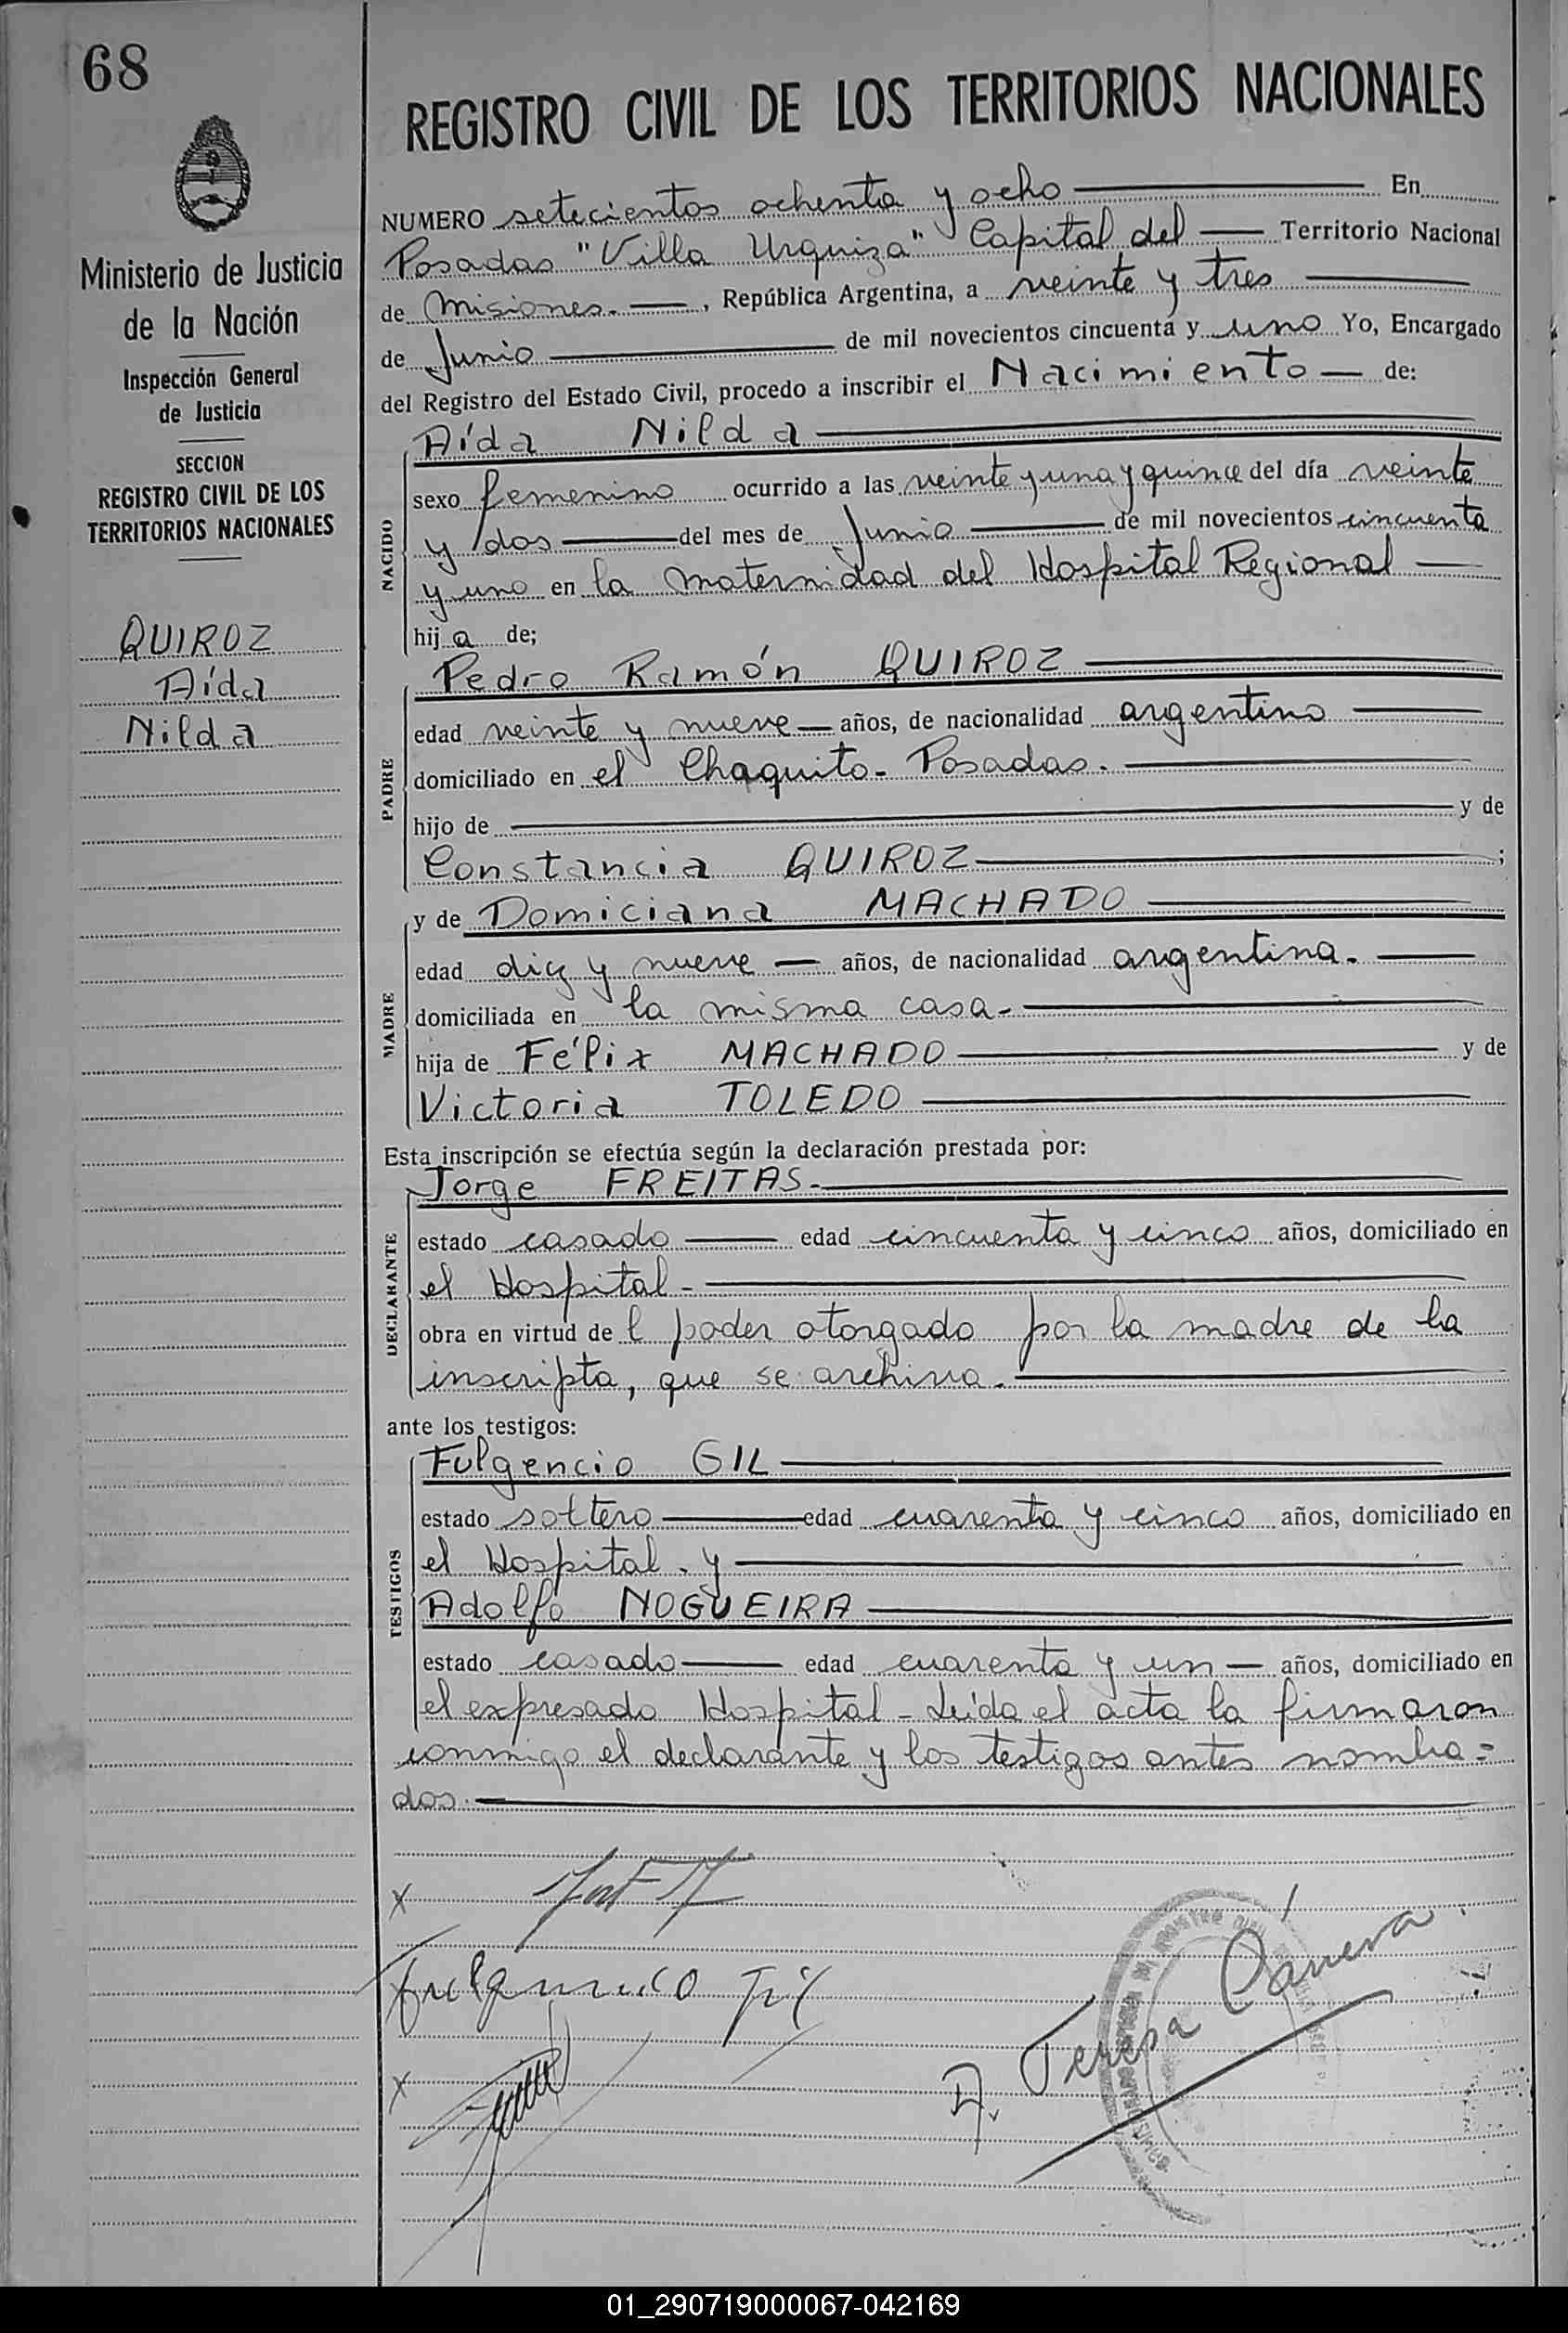 68
REGISTRO CIVIL DE LOS TERRITORIOS NACIONALES
Ministerio de Justicia
de la Nación
Inspección General
de Justicia
SECCION
REGISTRO CIVIL DE LOS
TERRITORIOS NACIONALES
QUIROZ
Aída
Nilda
NUMERO setecientos ochenta y ocho En
Posadas "Villa Urquiza" Capital del Territorio Nacional
de Misiones. , República Argentina, a veinte y tres
de Junio de mil novecientos cincuenta y uno Yo, Encargado
del Registro del Estado Civil, procedo a inscribir el Nacimiento de:
NACIDO
Aída Nilda
sexo femenino ocurrido a las veinte y una y quince del día veinte
y dos del mes de Junio de mil novecientos cincuenta
y uno en la maternidad del Hospital Regional
hija de;
PADRE
Pedro Ramón QUIROZ
edad veinte y nueve años, de nacionalidad argentino
domiciliado en el Chaquito- Posadas.
hijo de y de
Constancia QUIROZ ;
MADRE
y de Domiciana MACHADO
edad diez y nueve años, de nacionalidad argentina.
domiciliada en la misma casa-
hija de Félix MACHADO y de
Victoria TOLEDO
Esta inscripción se efectúa según la declaración prestada por:
DECLARANTE
Jorge FREITAS-
estado casado edad cincuenta y cinco años, domiciliado en
el Hospital-
obra en virtud del poder otorgado por la madre de la
inscripta, que se archiva.
ante los testigos:
TESTIGOS
Fulgencio GIL
estado soltero edad cuarenta y cinco años, domiciliado en
el Hospital. y
Adolfo NOGUEIRA
estado casado edad cuarenta y un años, domiciliado en
el expresado Hospital - Leída el acta la firmaron
conmigo el declarante y los testigos antes nombra=
dos.
x
Fulgencio Gil
x
A. Teresa Cáneva
01_290719000067-042169